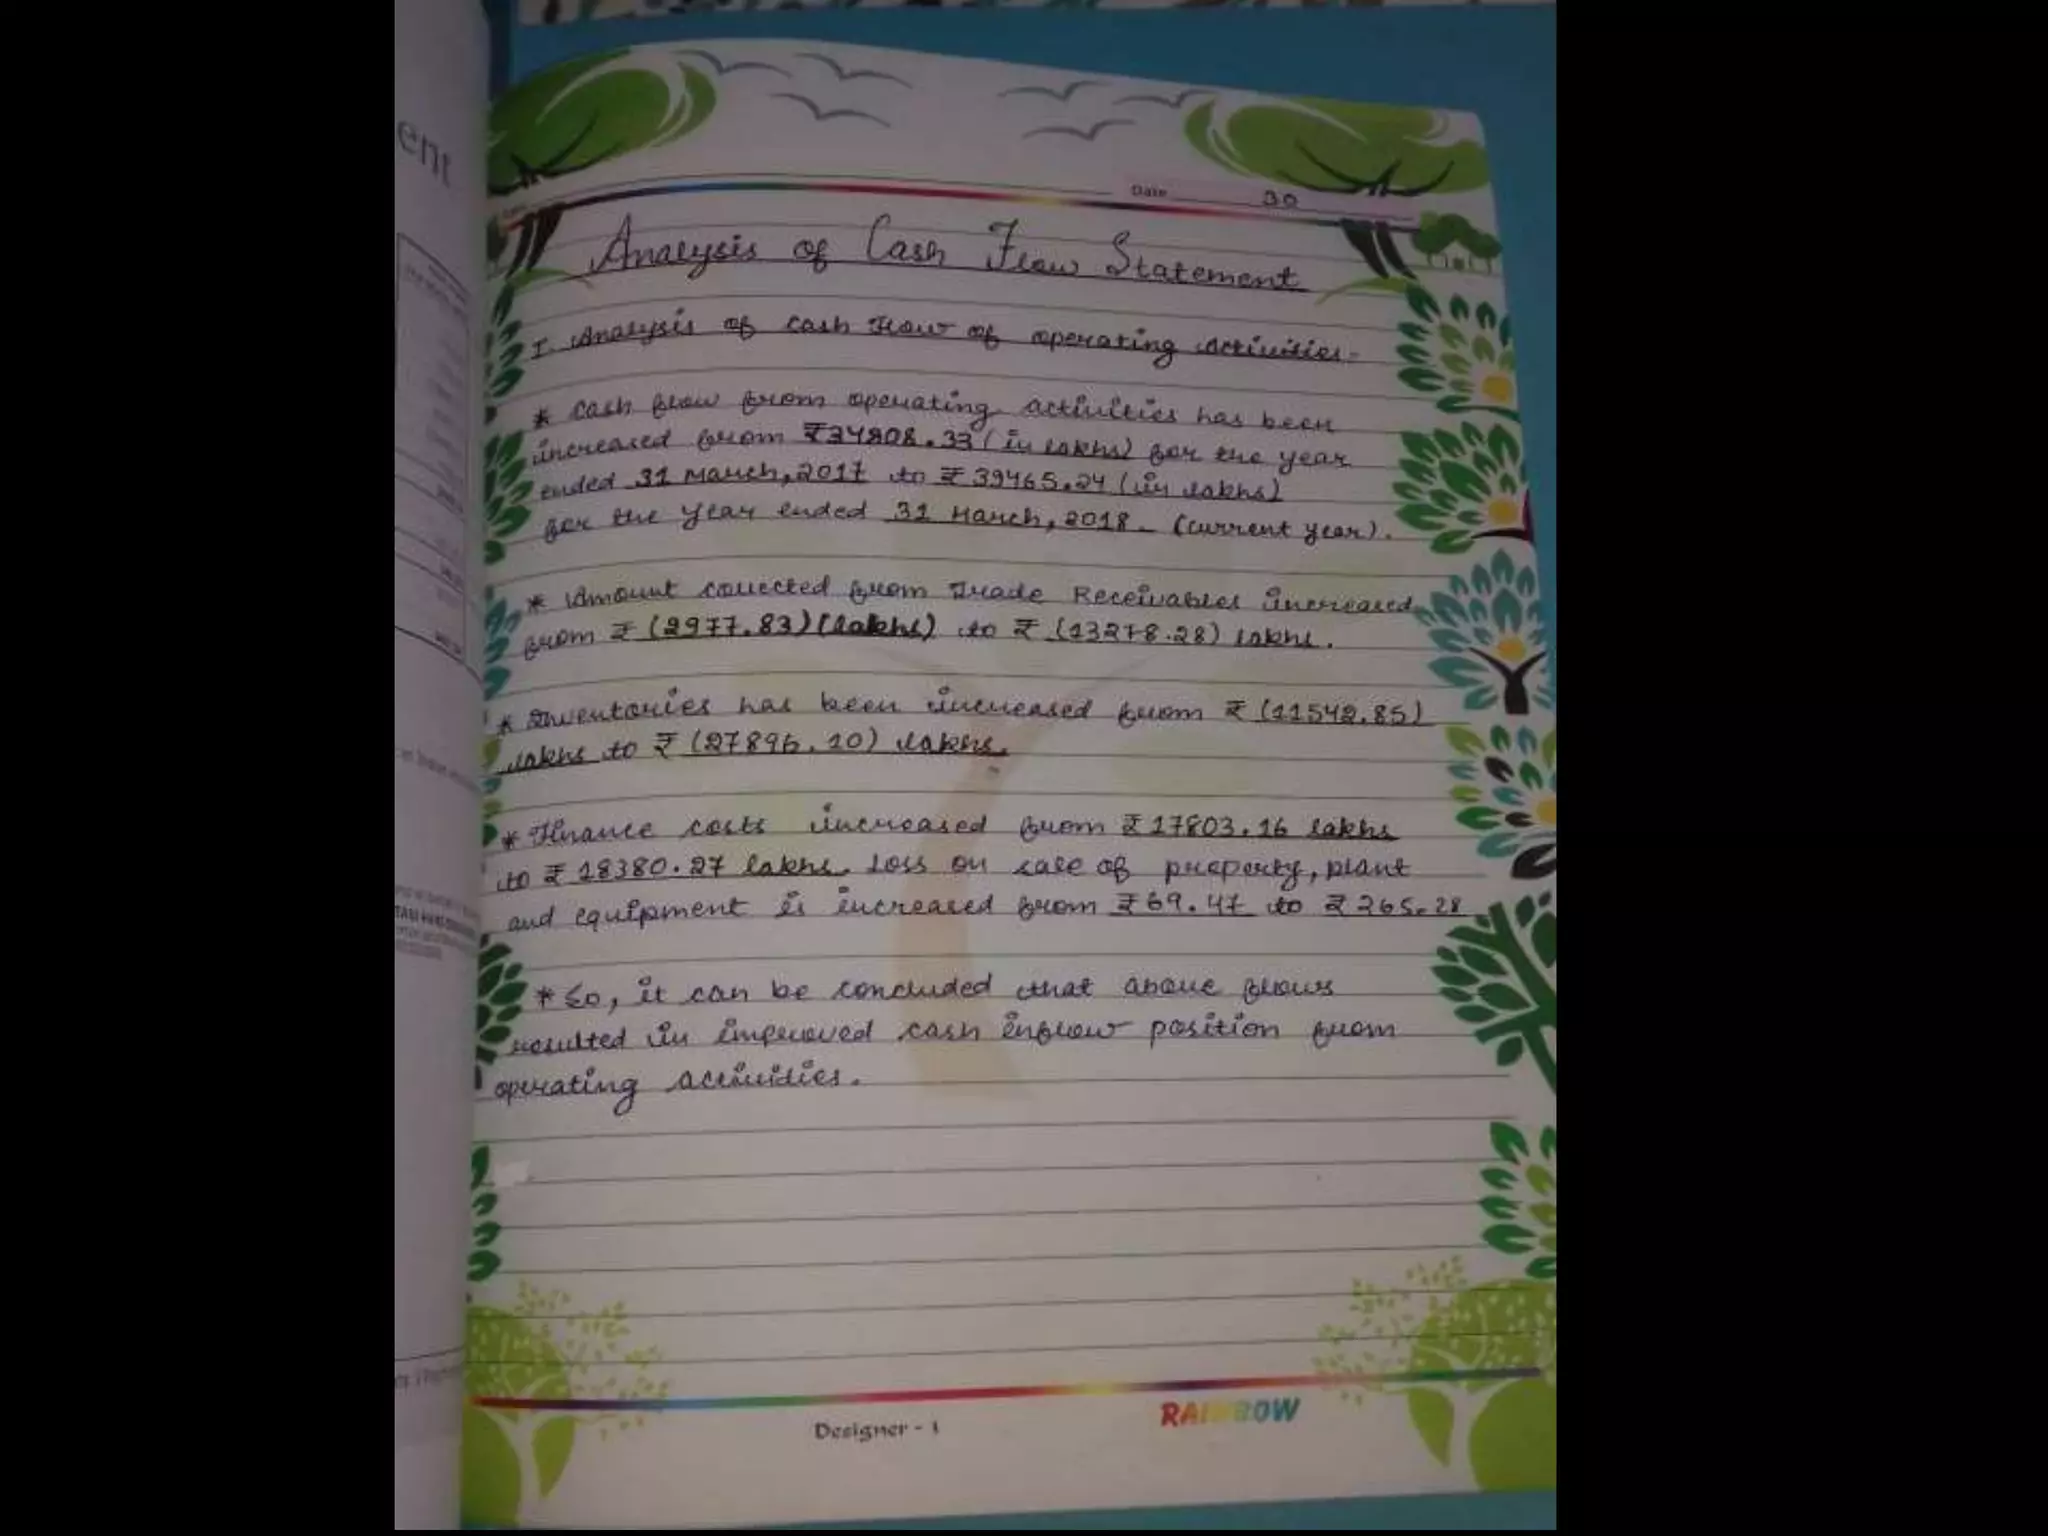 ent
Date 30
Analysis of Cash Flow Statement
I. Analysis of cash flow of operating Activities-
* Cash flow from operating activities has been
increased from ₹34808.33 (in lakhs) for the year
ended 31 March, 2017 to ₹39465.24 (in lakhs)
for the year ended 31 March, 2018. (current year).
* Amount collected from Trade Receivables increased
from ₹ (2977.83) (lakhs) to ₹ (13278.28) lakhs.
* Inventories has been increased from ₹ (11542.85)
lakhs to ₹ (27896.10) lakhs.
* Finance costs increased from ₹17803.16 lakhs
to ₹ 18380.27 lakhs. Loss on sale of property, plant
and equipment is increased from ₹69.47 to ₹265.28
* So, it can be concluded that above flows
resulted in improved cash inflow position from
operating activities.
Designer - 1
RAINBOW